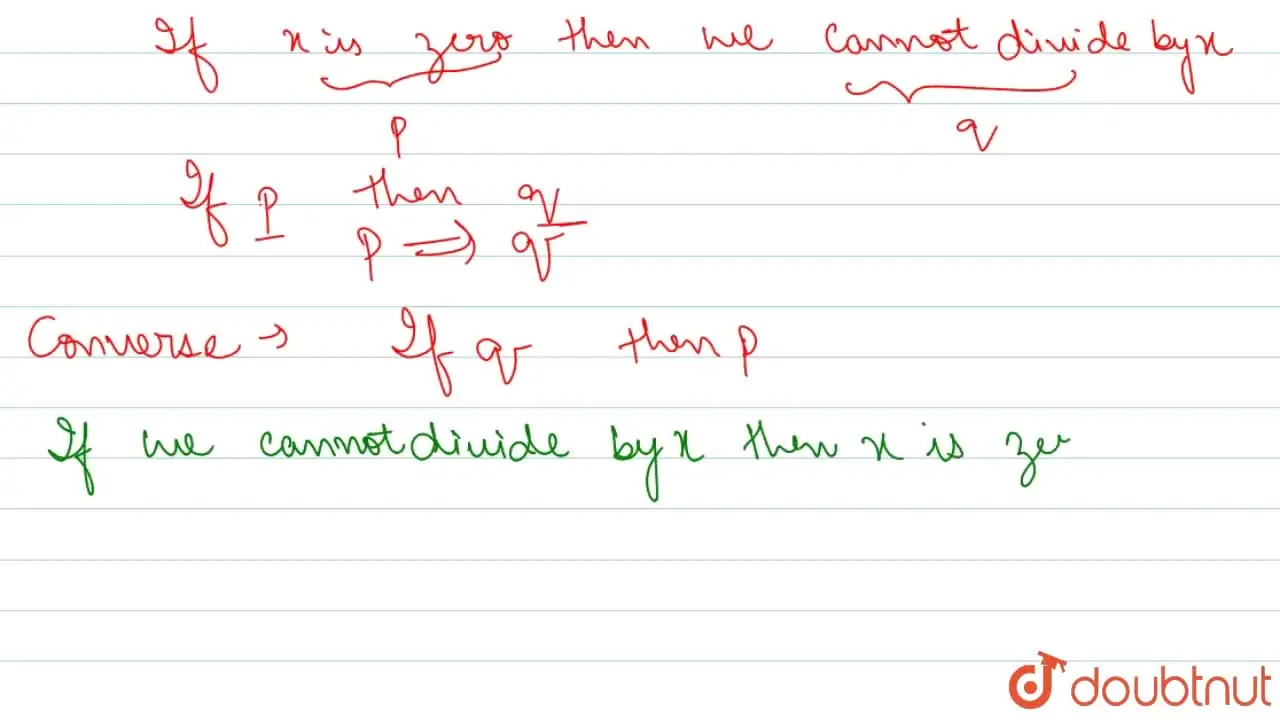 If x is zero then we cannot divide by x
p q
If p then q
p ⇒ q
Converse → If q then p
If we cannot divide by x then x is ze
doubtnut